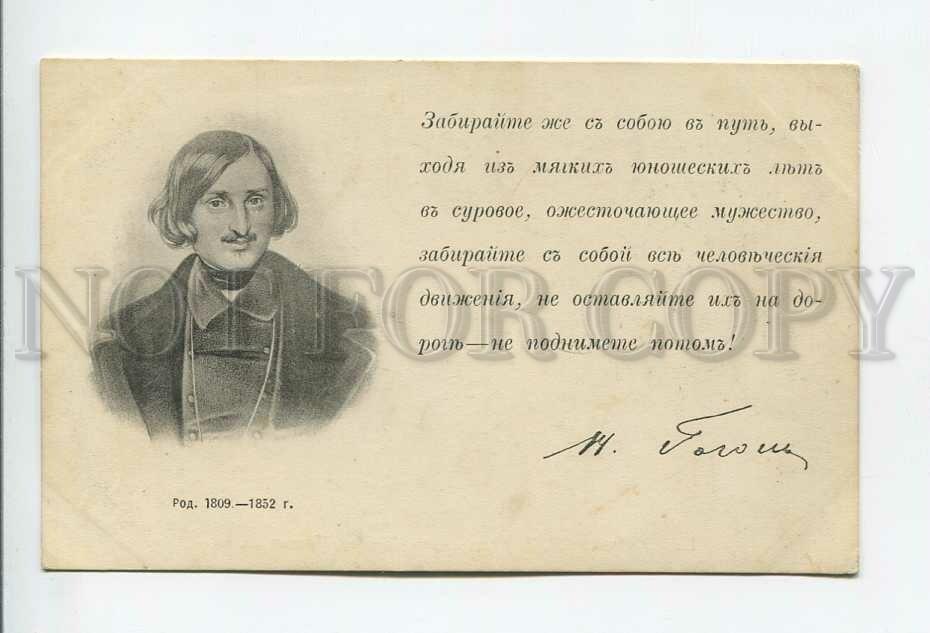 Забирайте же съ собою въ путь, вы-
ходя изъ мягкихъ юношескихъ лѣтъ
въ суровое, ожесточающее мужество,
забирайте съ собой всѣ человѣческія
движенія, не оставляйте ихъ на до-
рогѣ—не поднимете потомъ!
NOT FOR COPY
Н. Гоголь
Род. 1809.—1852 г.